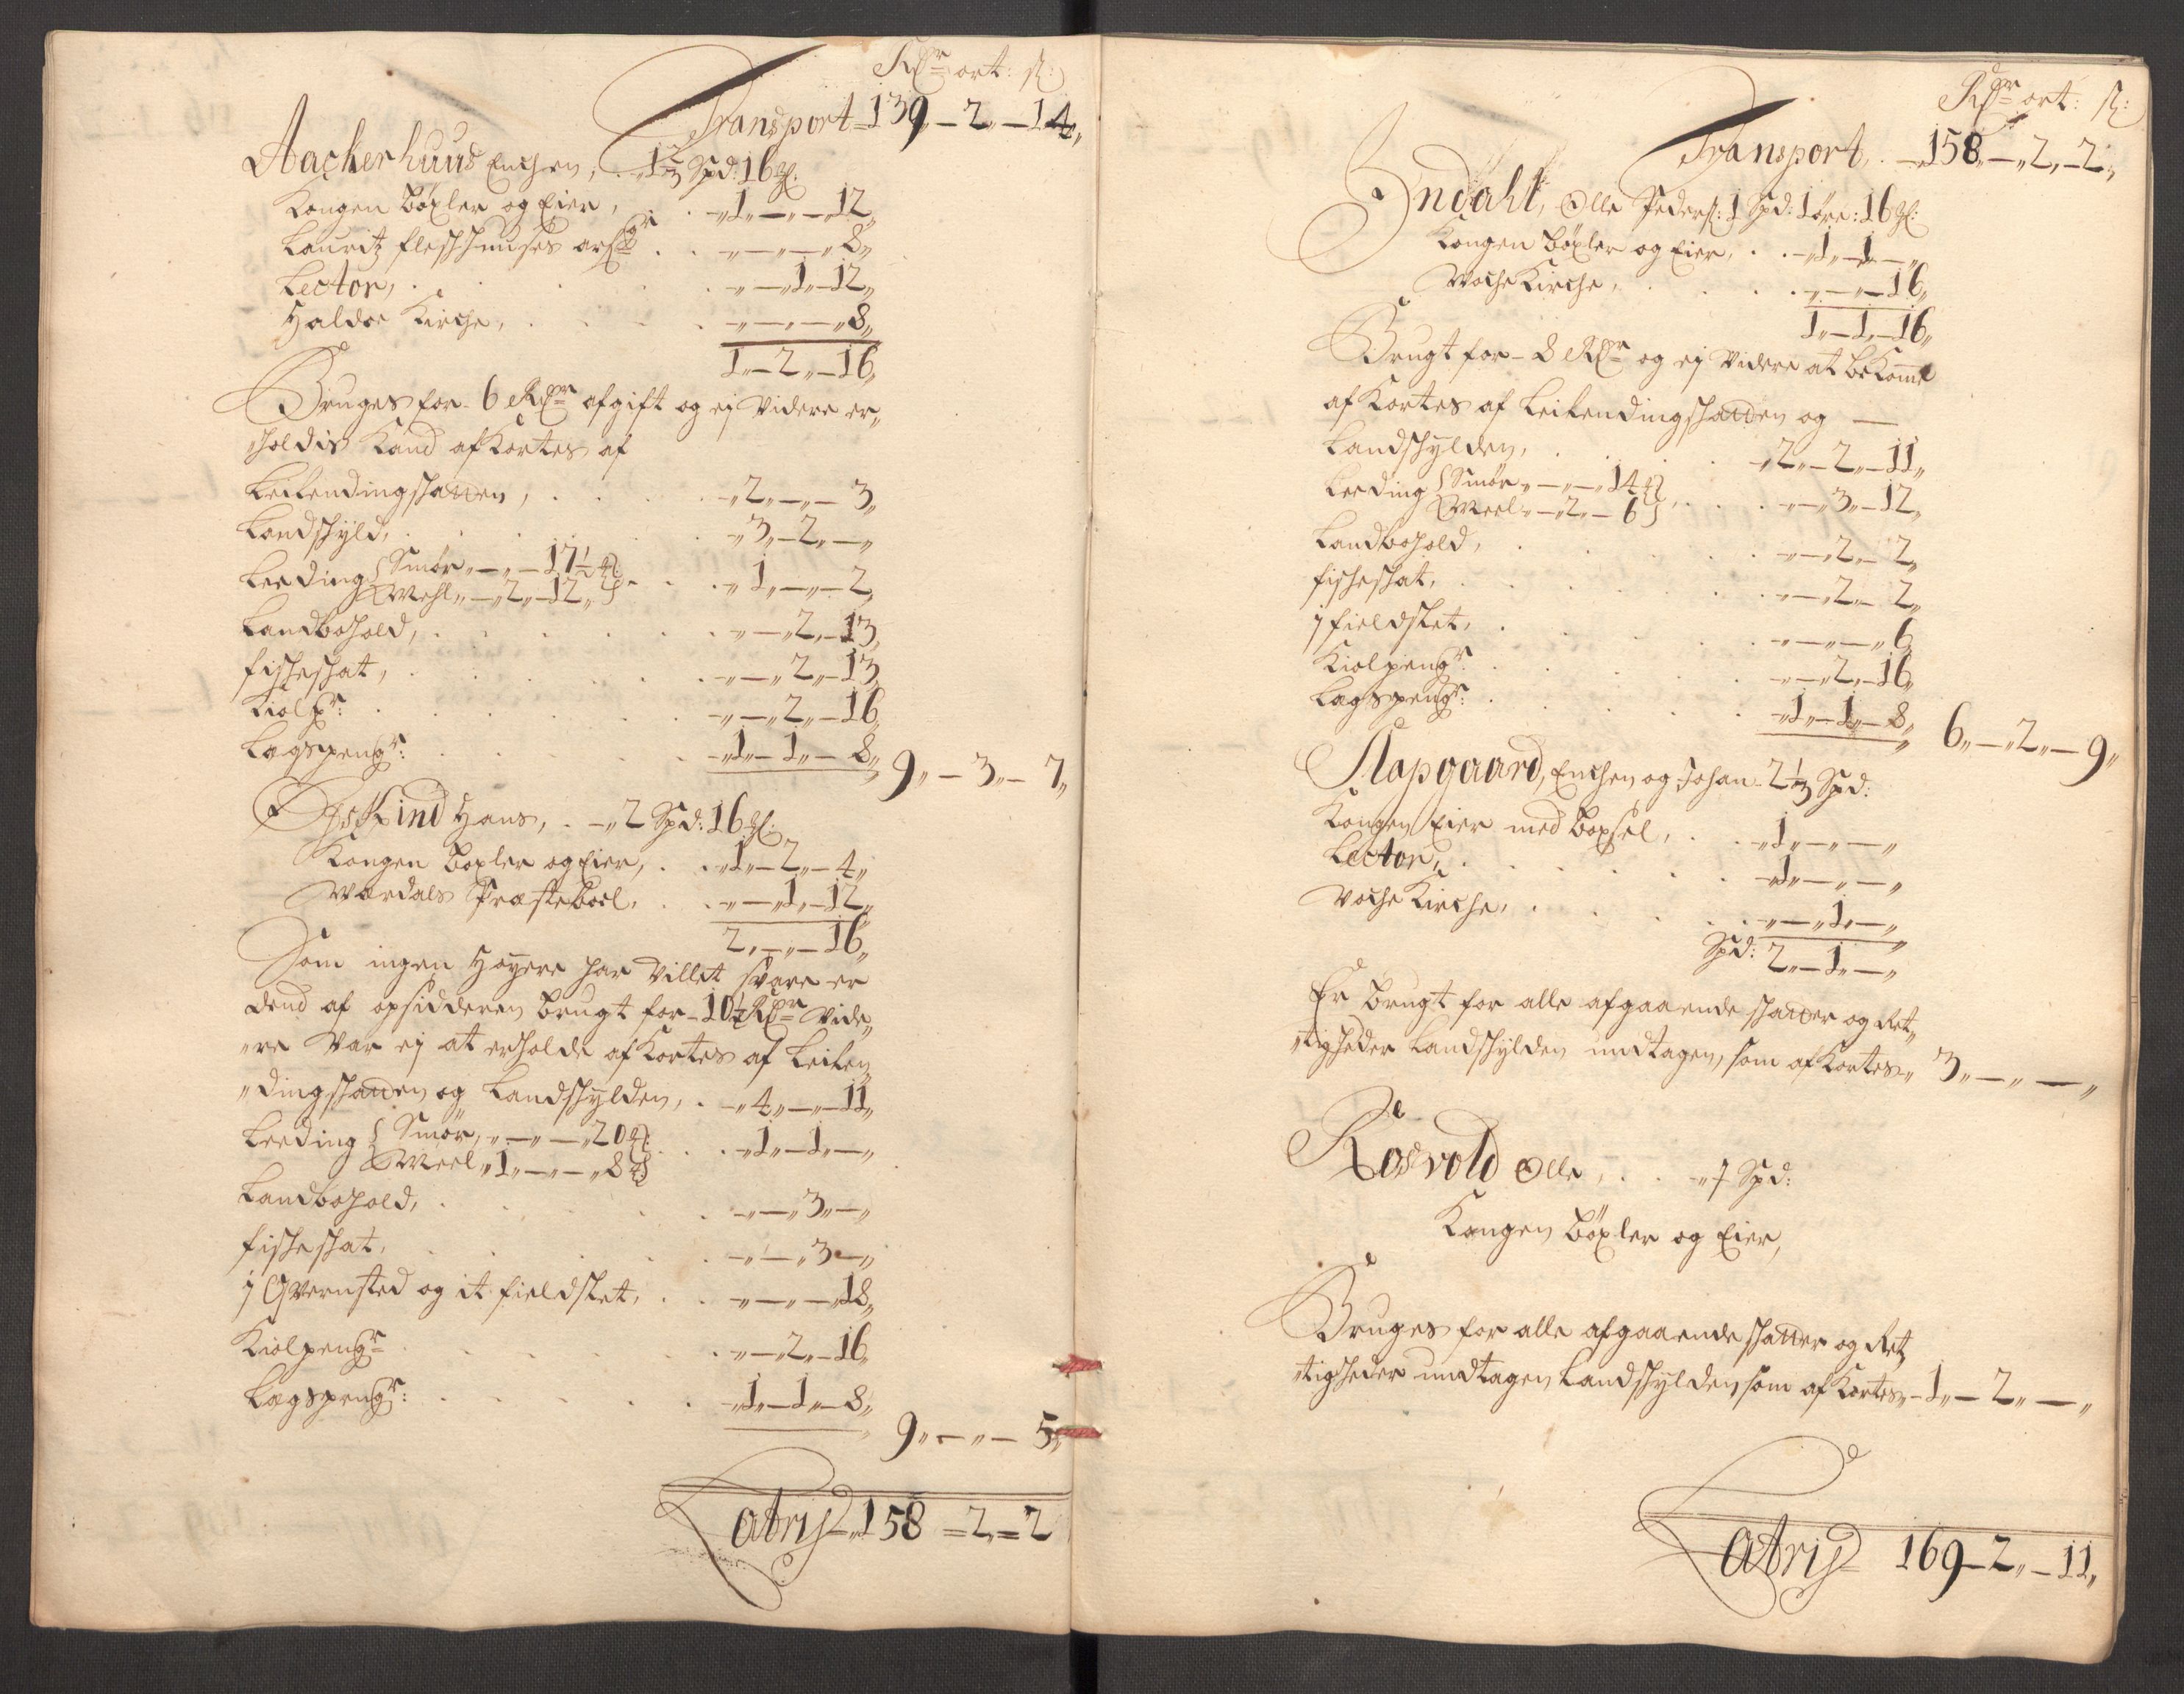 Rdr ort: ß:
Transport 139„ – 2„ – 14„
Aackerhuus Enchen, 1⅔ Spd: 16 ℔:
Kongen böxler og Eier, „1„ – „ – 12„
Lauritz fleschhuuses arf: „ – „ – „ 8„
Lector, „ – „1„ – 12„
Haldoe Kirche, „ – „ – „ 8„
1„ – 2„ – 16„
Bruges for 6 Rdr afgift og ej Videre er„
„holdis Kand afKortes af
Leilendingschatten, „2„ – „ – 3„
Landschyld, „3„ – 2„ – „
Leeding Smör „ – „ – 17½ ℔
Mehl „ – „2„ – 12„ „1„ – „ – 2„
Landbohold, „ – „2„ – 13„
fischeschat, „ – „2„ – 13„
Kiolpr: „ – „2„ – 16„
Lagspengr: „1„ – 1„ – 8„ 9„ – 3„ – 7„
Hans, „2 Spd: 16 ℔:
Kongen boxler og Eier, „1„ – 2„ – 4„
Wærdals Præsteboel, „ – „1„ – 12„
2„ – „ – 16„
Som ingen Höyere har villet svare er
dend af opsidderen brugt for 10½ Rdr Vide„
„re Var ej at erholde afKortes af Leilen„
„dingschatten og Landschylden, „4„ – „ – 11„
Leeding Smör, „ – „ – „20 ℔
Meel „1„ – „ – „8 „1„ – 1„ – „
Landbohold, „ – „3„ – „
fischeschat, „ – „3 – „
j Qvernsted og it fieldslet, „ – „ – „18„
Kiolpengr „ – „2„ – 16„
Lagspengr: „1„ – 1„ – 8„
9„ – „ – 5„
Latris „158 = 2„ = 2
Rdr ort: ß:
Transport, „158„ – „2„ – 2„
Indahl, Olle Peders: 1 Spd: 1 öre: 16 ℔:
Kongen böxler og Eier, „1„ – 1 – „
Woche Kirche, „ – „ – 16„
1„ – 1„ – 16„
Brugt for 8 Rdr og ej Videre at beKomme
afKortes af Leilendingschatten og –
Landschylden, „2„ – 2„ – 11„
Leeding Smör „ – „ – „14 ℔
Meel „ – „2„ – 6 „ – „3„ – 12„
Landbohold, „ – „2„ – 2„
fischeschat, „ – „2„ – 2„
j fieldslet, „ – „ – „6„
Kiolpengr: „ – „2„ – 16„
Lagspengr: „1„ – 1„ – 8„ 6„ – „2„ – 9„
Slapgaard, Enchen og Johan 2⅓ Spd:
Kongen Eier med boxsel, „1„ – „ – „
Lector, „1„ – „ – „
Woche Kirche, „ – „1„ – „
Spd: 2„ – 1„ – „
Er brugt for alle afgaaende schatter og Ret„
„tigheder Landschylden undtagen, som afKortes„ 3„ – „ – „
Rosvold Olle, „1 Spd:
Kongen böxler og Eier,
Bruges for alle afgaaende schatter og Ret„
„tigheder undtagen Landschylden som afKortes, „1„ – 2„ – „
Latris 169 – 2„ – 11„